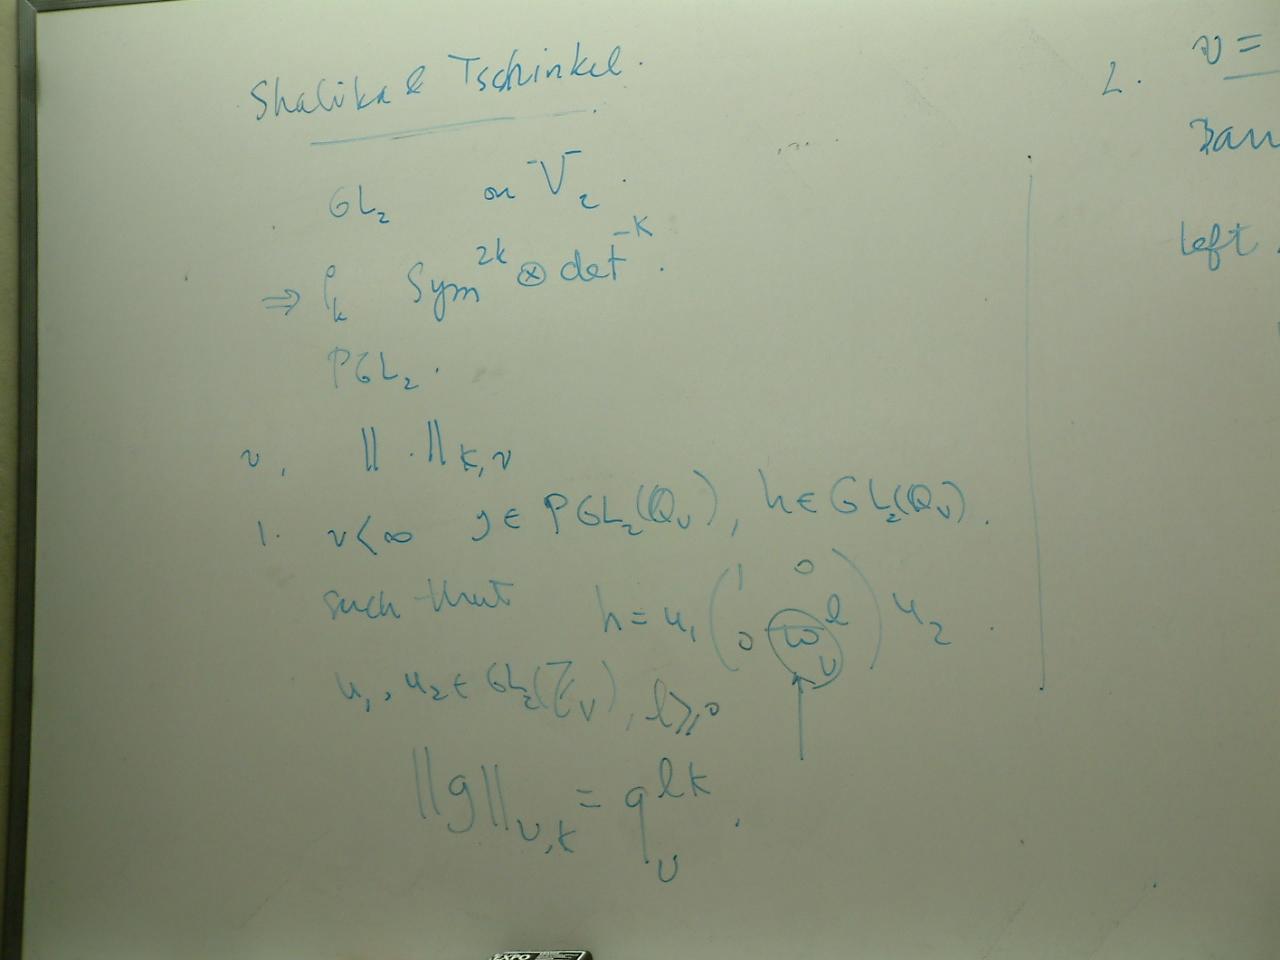 Shalika & Tschinkel.
GL₂ on V₂.
⇒ ρₖ Sym^{2k} ⊗ det^{-k}.
PGL₂.
v, ||·||_{k,v}
1. v<∞ g ∈ PGL₂(Q_v), h ∈ GL₂(Q_v).
such that h = u₁ (1 0; 0 ϖ_v^l) u₂.
u₁, u₂ ∈ GL₂(Z_v), l ≥ 0
||g||_{v,k} = q_v^{lk}.
2. v =
left
EXPO